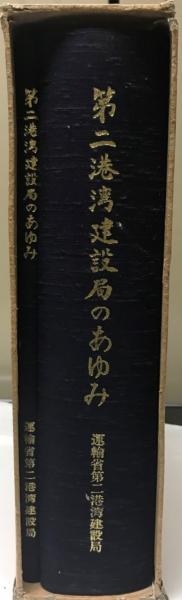 第二港湾建設局のあゆみ
運輸省第二港湾建設局
第二港湾建設局のあゆみ
運輸省第二港湾建設局